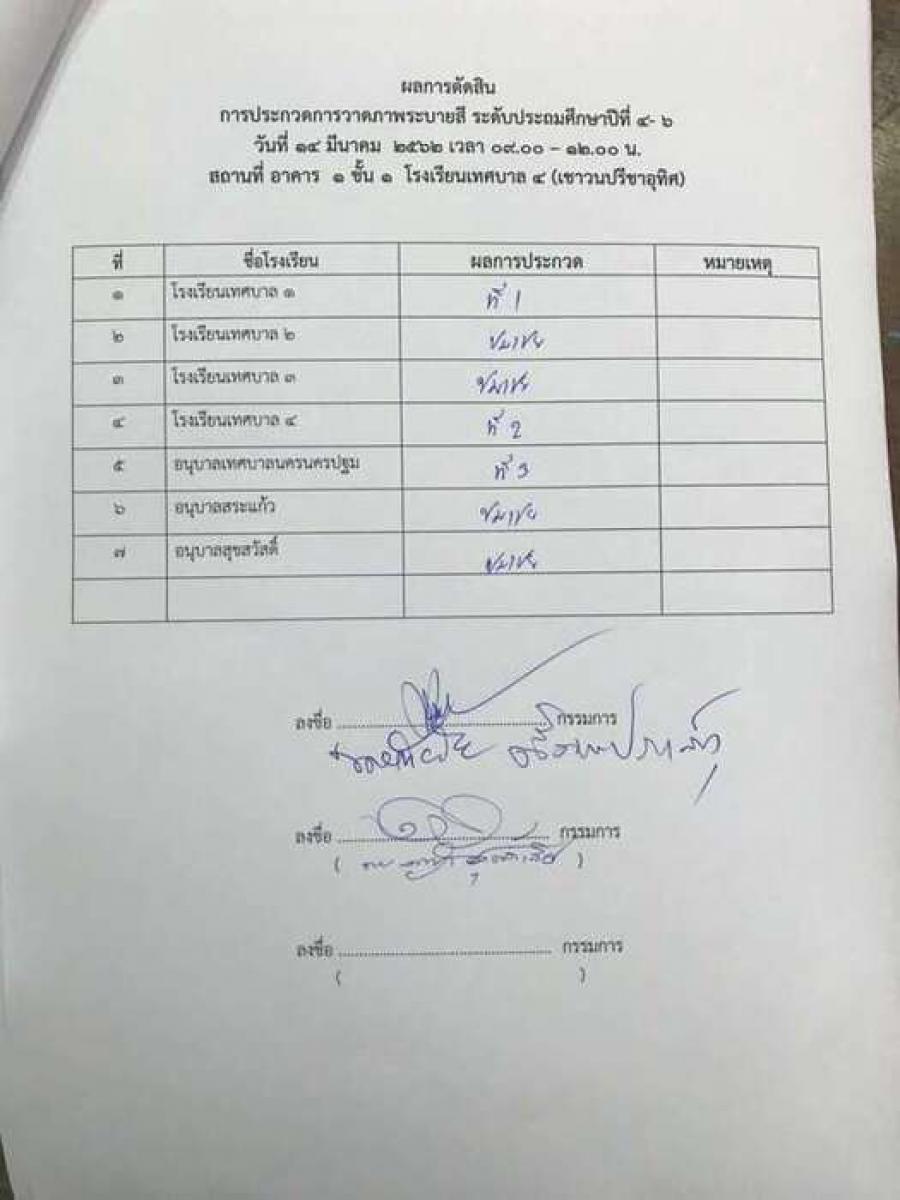 ผลการตัดสิน
การประกวดการวาดภาพระบายสี ระดับประถมศึกษาปีที่ ๔- ๖
วันที่ ๑๔ มีนาคม ๒๕๖๒ เวลา ๐๙.๐๐ – ๑๒.๐๐ น.
สถานที่ อาคาร ๑ ชั้น ๑ โรงเรียนเทศบาล ๔ (เชาวนปรีชาอุทิศ)
ที่ ชื่อโรงเรียน ผลการประกวด หมายเหตุ
๑ โรงเรียนเทศบาล ๑ ที่ 1
๒ โรงเรียนเทศบาล ๒ ชมเชย
๓ โรงเรียนเทศบาล ๓ ชมเชย
๔ โรงเรียนเทศบาล ๔ ที่ 2
๕ อนุบาลเทศบาลนครนครปฐม ที่ 3
๖ อนุบาลสระแก้ว ชมเชย
๗ อนุบาลสุขสวัสดิ์ ชมเชย
ลงชื่อ ........................................ กรรมการ
ลงชื่อ ........................................ กรรมการ
( )
ลงชื่อ ........................................ กรรมการ
( )